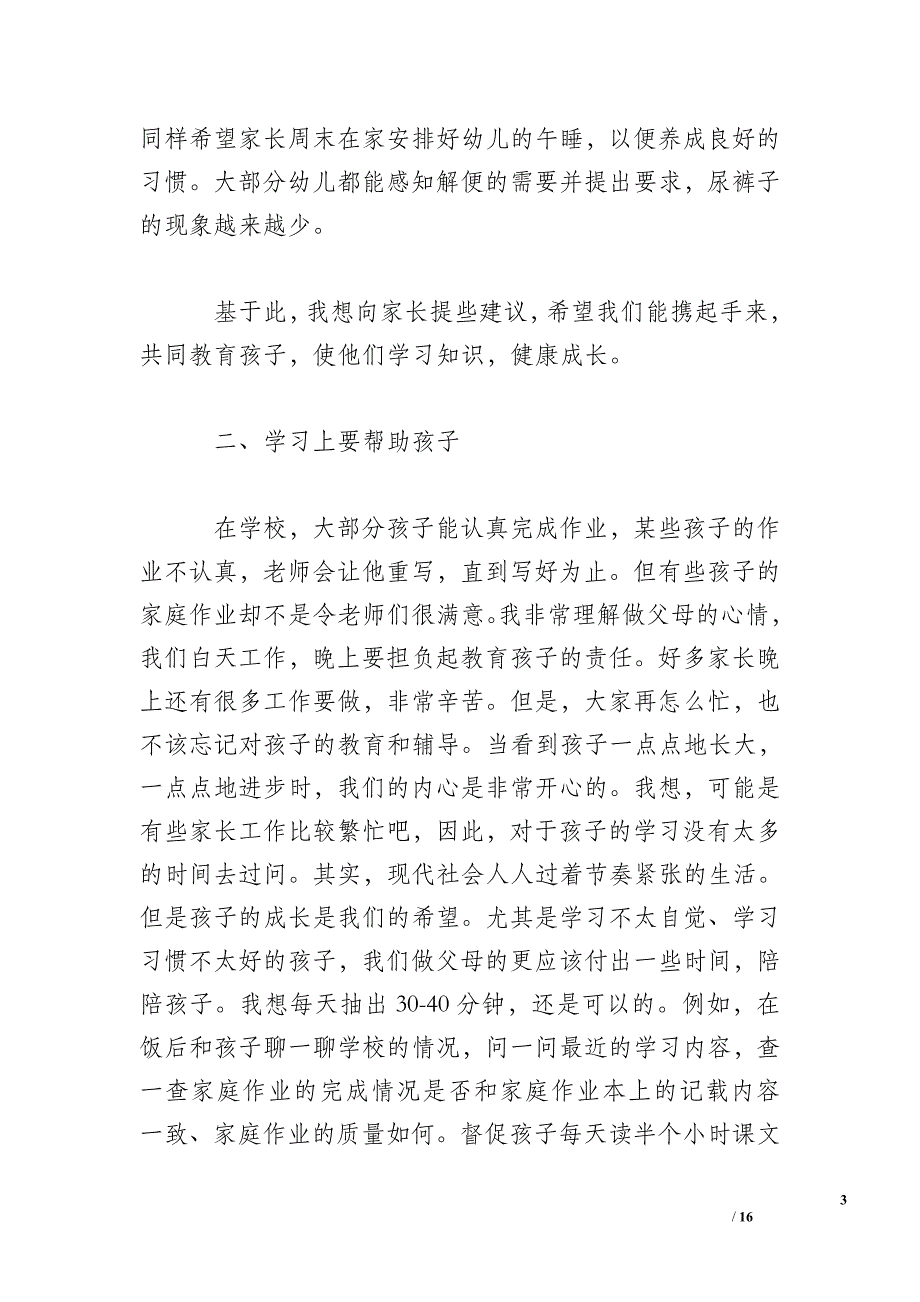 同样希望家长周末在家安排好幼儿的午睡，以便养成良好的
习惯。大部分幼儿都能感知解便的需要并提出要求，尿裤子
的现象越来越少。
基于此，我想向家长提些建议，希望我们能携起手来，
共同教育孩子，使他们学习知识，健康成长。
二、学习上要帮助孩子
在学校，大部分孩子能认真完成作业，某些孩子的作
业不认真，老师会让他重写，直到写好为止。但有些孩子的
家庭作业却不是令老师们很满意。我非常理解做父母的心情，
我们白天工作，晚上要担负起教育孩子的责任。好多家长晚
上还有很多工作要做，非常辛苦。但是，大家再怎么忙，也
不该忘记对孩子的教育和辅导。当看到孩子一点点地长大，
一点点地进步时，我们的内心是非常开心的。我想，可能是
有些家长工作比较繁忙吧，因此，对于孩子的学习没有太多
的时间去过问。其实，现代社会人人过着节奏紧张的生活。
但是孩子的成长是我们的希望。尤其是学习不太自觉、学习
习惯不太好的孩子，我们做父母的更应该付出一些时间，陪
陪孩子。我想每天抽出 30-40 分钟，还是可以的。例如，在
饭后和孩子聊一聊学校的情况，问一问最近的学习内容，查
一查家庭作业的完成情况是否和家庭作业本上的记载内容
一致、家庭作业的质量如何。督促孩子每天读半个小时课文
3
/ 16